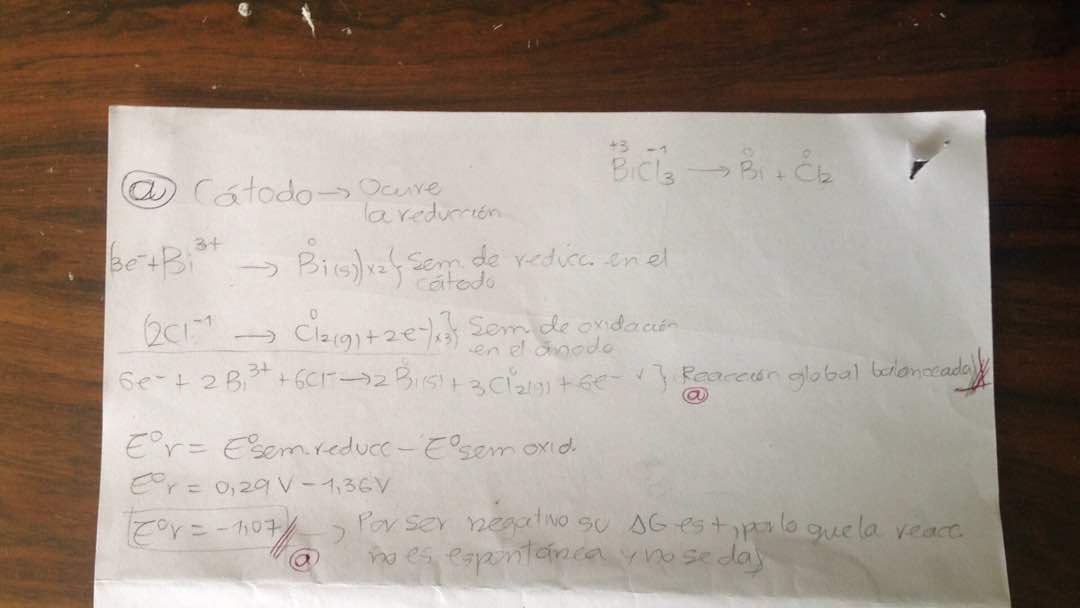 +3 -1 0 0
BiCl₃ → Bi + Cl₂
ⓐ Cátodo → Ocurre
la reducción
(3e⁻ + Bi³⁺ → Bi⁰(s))x2} Sem. de reducc. en el
cátodo
(2Cl⁻¹ → Cl₂⁰(g) + 2e⁻)x3} Sem. de oxidación
en el ánodo
6e⁻ + 2Bi³⁺ + 6Cl⁻ → 2Bi⁰(s) + 3Cl₂⁰(g) + 6e⁻ } Reacción global balanceada
ⓐ
E°r = E°sem.reducc - E°sem oxid.
E°r = 0,29V - 1,36V
E°r = -1,07 → Por ser negativo su ΔG es +, por lo que la reacc.
ⓐ no es espontánea y no se da